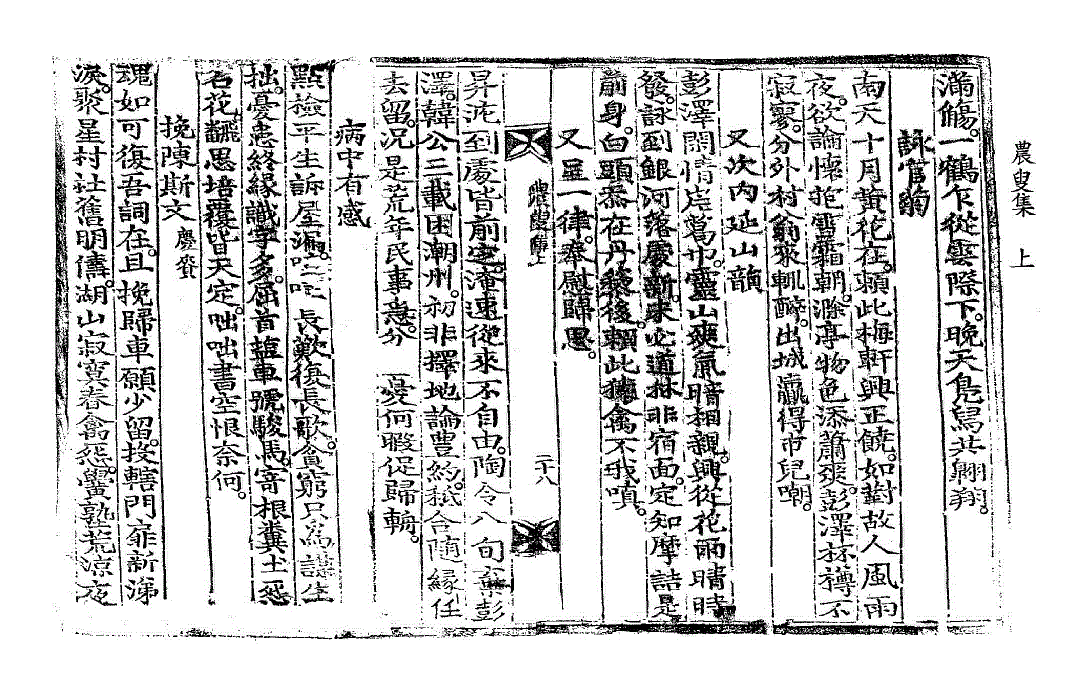 農叟集 上
滿觴一鶴乍從雲際下晚天鳧舃共翺翔
詠官菊
南天十月黃花在賴此梅軒興正饒如對故人風雨
夜欲論懷抱雪霜朝滁亭物色添蕭爽彭澤杯樽不
寂寥分外村翁來輒醉出城贏得市兒嘲
又次內延山韻
彭澤閒情岸葛巾靈山爽氣暗相親興從花雨晴時
發詠到銀河落處新未必道林非宿面定知摩詰是
前身白頭忝在丹黎後賴此猿禽不我嗔
又疊一律奉慰歸思
農叟集上
二十八
昇沈到處皆前定淹速從來不自由陶令八旬棄彭
澤韓公二載困潮州初非擇地論豊約秪合隨緣任
去留況是荒年民事急分憂何暇促歸輈
病中有感
點檢平生訴屋漏 長歎復長歌貧窮只爲謀生
拙憂患終緣識字多屈首鹽車號駿馬寄根糞土怨
名花飜思培覆皆天定咄咄書空恨奈何
挽陳斯文 慶發
魂如可復吾詞在且挽歸車願少留投轄門 新涕
淚聚星村社舊朋儔湖山寂寞春禽怨黌塾荒凉夜